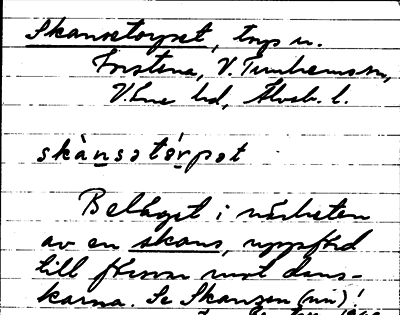 Skansetorpet, torp u.
Trestena, V. Tunhems sn,
V:ne hd, Älvsb. l.
skànsetórpet
Beläget i närheten
av en skans, uppförd
till försvar mot dans-
karna. Se Skansen (nin)!